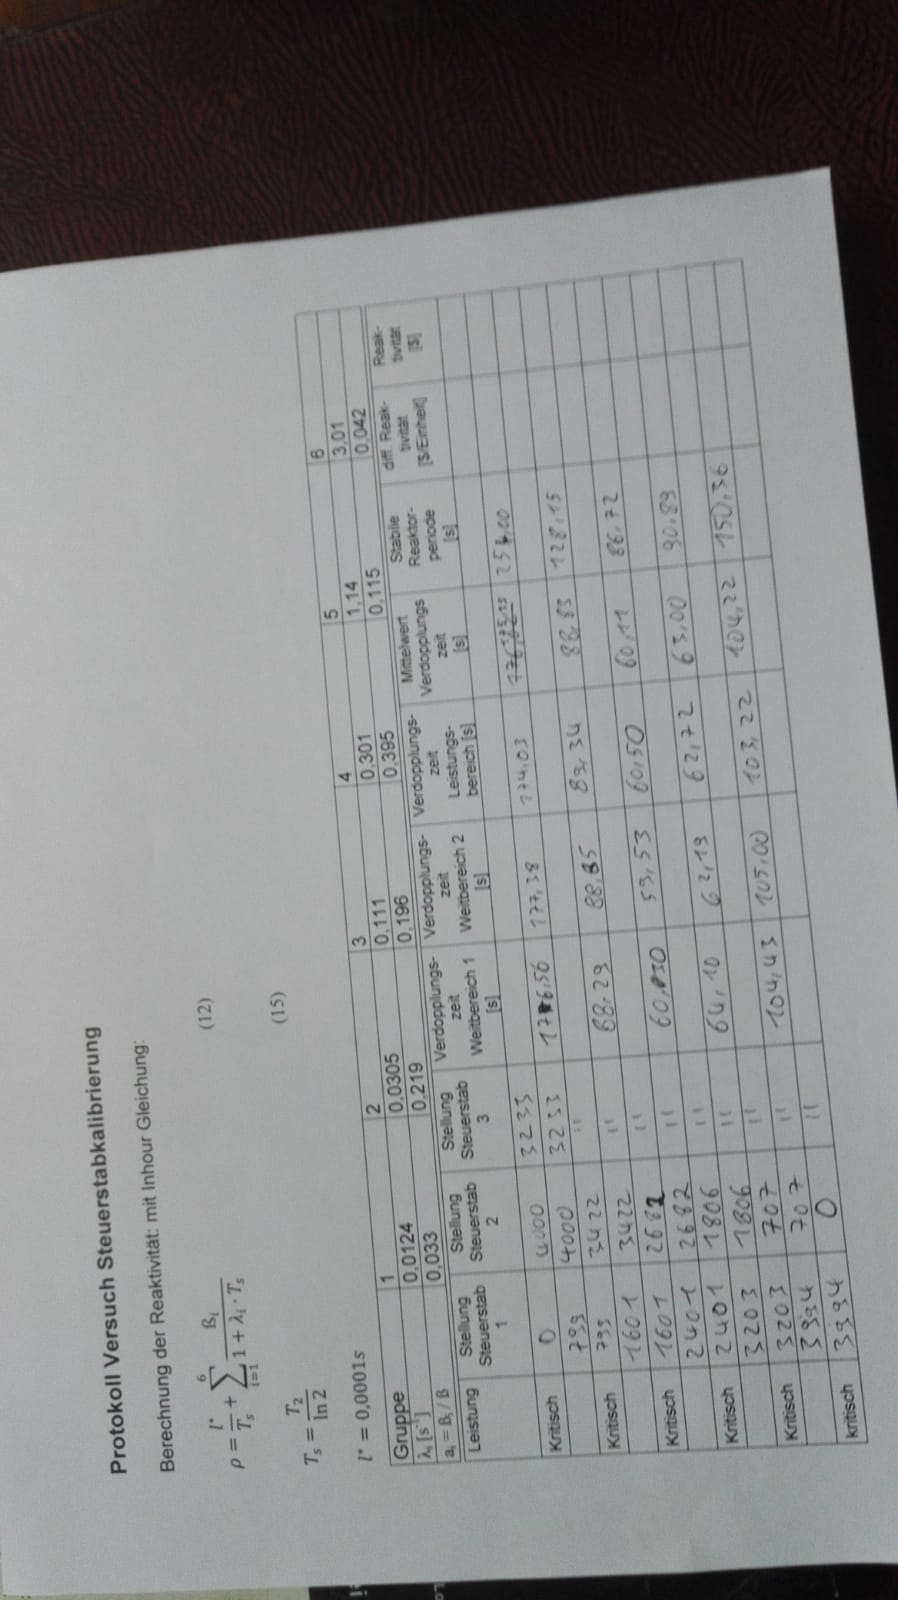 Protokoll Versuch Steuerstabkalibrierung
Berechnung der Reaktivität: mit Inhour Gleichung:
ρ = l*/T_s + Σ_{i=1}^{6} ß_i / (1 + λ_i · T_s) (12)
T_s = T_2 / ln 2 (15)
l* = 0,0001s
Gruppe 1 2 3 4 5 6
λ_i [s⁻¹] 0,0124 0,0305 0,111 0,301 1,14 3,01
a_i = ß_i / ß 0,033 0,219 0,196 0,395 0,115 0,042
Leistung Stellung Steuerstab 1 Stellung Steuerstab 2 Stellung Steuerstab 3 Verdopplungs-zeit Weitbereich 1 [s] Verdopplungs-zeit Weitbereich 2 [s] Verdopplungs-zeit Leistungs-bereich [s] Mittelwert Verdopplungs zeit [s] Stabile Reaktor-periode [s] diff. Reak-tivität [$/Einheit] Reak-tivität [$]
Kritisch 0 4000 3233
799 4000 3233 176,56 177,38 174,03
Kritisch 799 3422 "
1601 3422 " 88,29 88,85 89,34 88,83 128,15
Kritisch 1601 2682 "
2401 2682 " 60,30 59,53 60,50 60,11 86,72
Kritisch 2401 1806 "
3203 1806 " 64,10 62,19 62,72 63,00 90,89
Kritisch 3203 707 "
3994 707 " 104,43 105,00 103,22 104,22 150,36
kritisch 3994 0 "